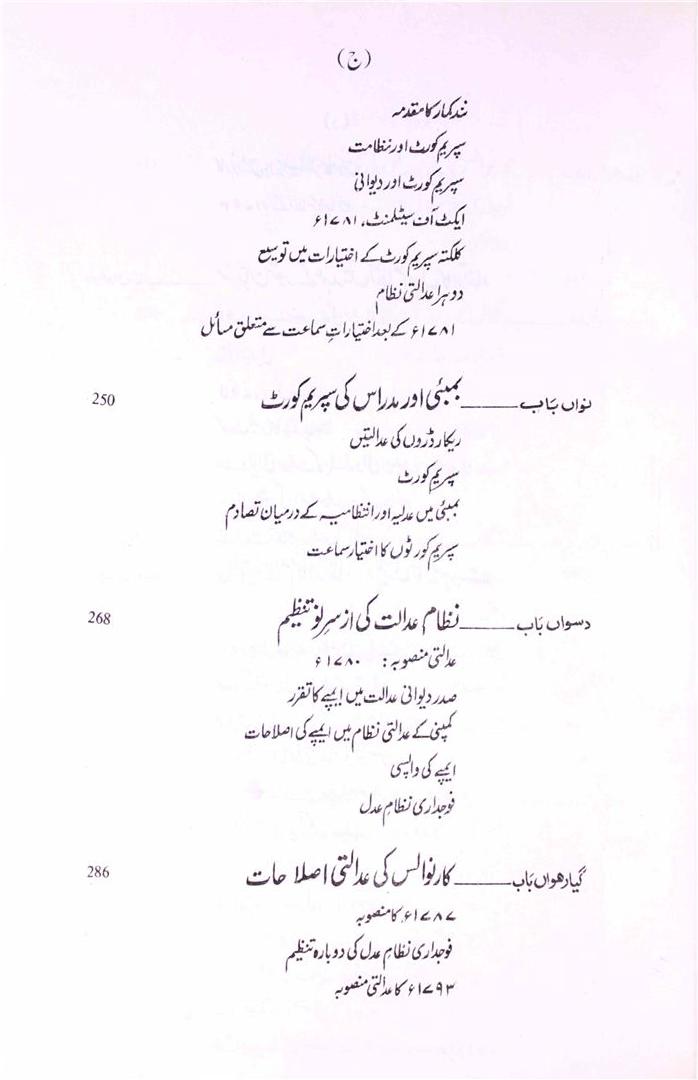 (ج)
نند کمار کا مقدمہ
سپریم کورٹ اور نظامت
سپریم کورٹ اور دیوانی
ایکٹ آف سیٹلمنٹ، ۱۷۸۱ء
کلکتہ سپریم کورٹ کے اختیارات میں توسیع
دوہرا عدالتی نظام
۱۷۸۱ء کے بعد اختیاراتِ سماعت سے متعلق مسائل
نواں باب ــــــ بمبئی اور مدراس کی سپریم کورٹ 250
ریکارڈروں کی عدالتیں
سپریم کورٹ
بمبئی میں عدلیہ اور انتظامیہ کے درمیان تصادم
سپریم کورٹوں کا اختیار سماعت
دسواں باب ــــــ نظام عدالت کی از سرِ نو تنظیم 268
عدالتی منصوبہ: ۱۷۸۰ء
صدر دیوانی عدالت میں ایمپے کا تقرر
کمپنی کے عدالتی نظام میں ایمپے کی اصلاحات
ایمپے کی واپسی
فوجداری نظامِ عدل
گیارھواں باب ــــــ کارنوالس کی عدالتی اصلاحات 286
۱۷۸۷ء کا منصوبہ
فوجداری نظامِ عدل کی دوبارہ تنظیم
۱۷۹۳ء کا عدالتی منصوبہ